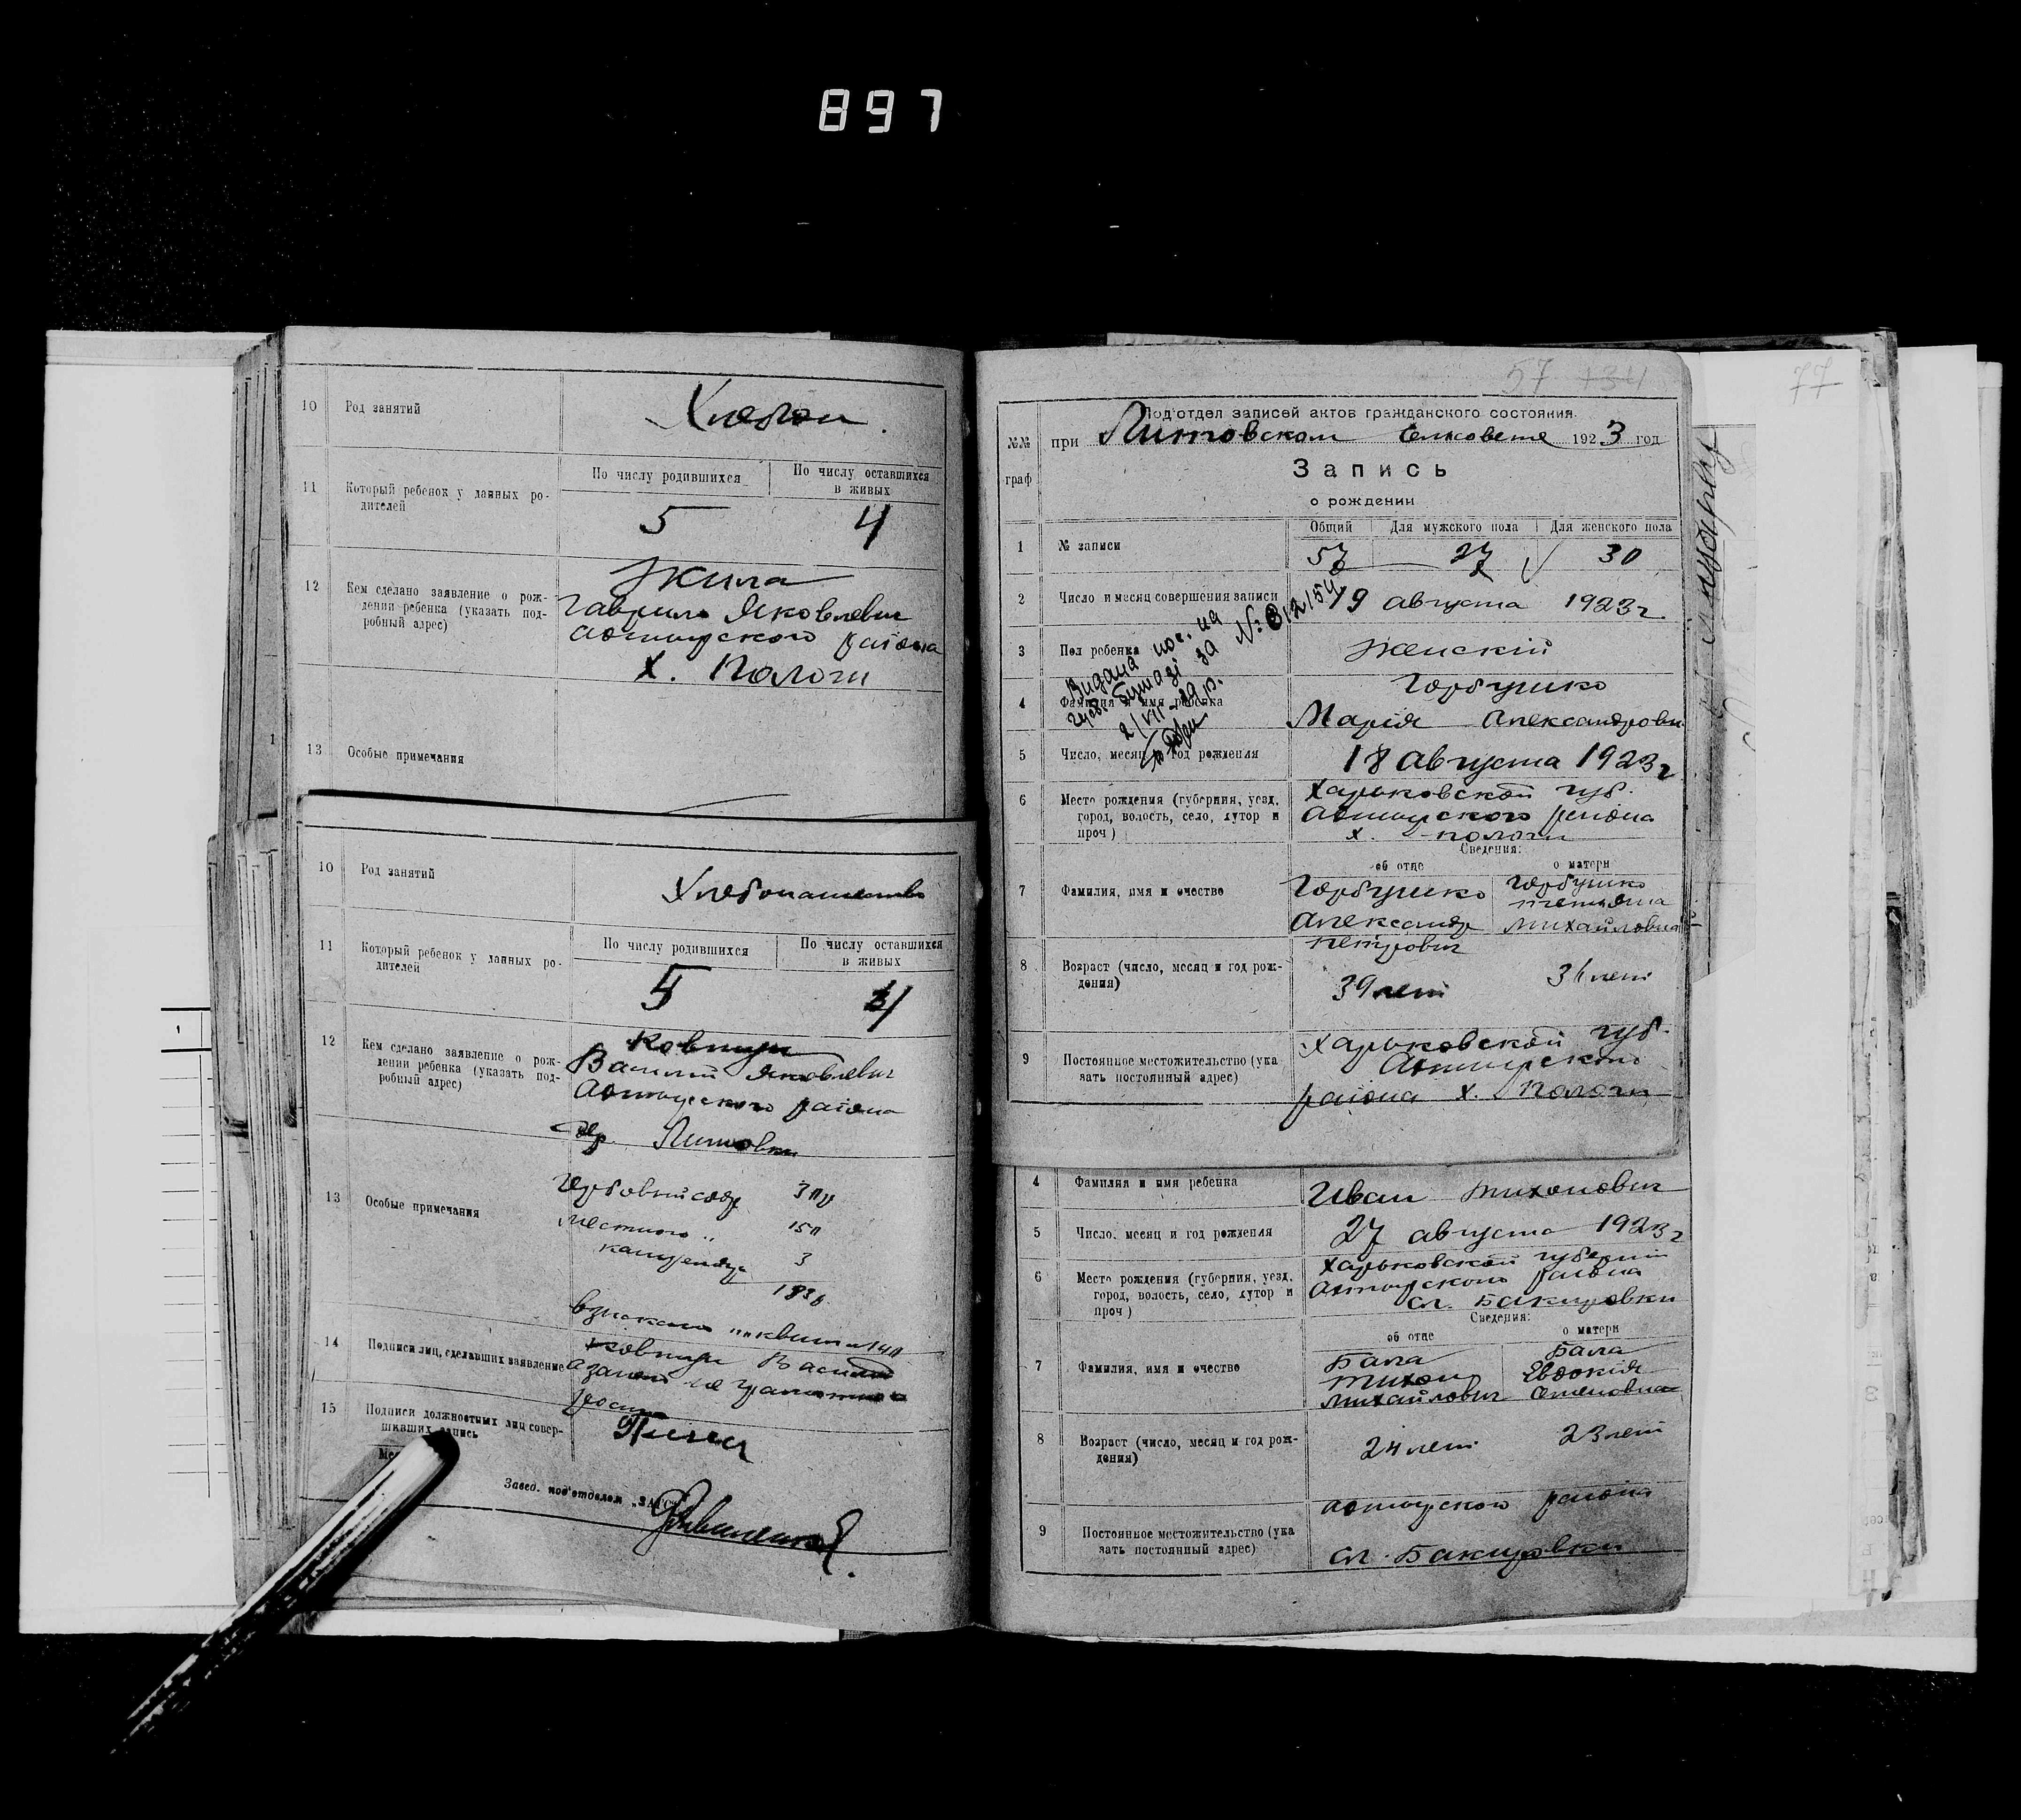 897
10 Род занятий
Хлебоп
11 Который ребенок у данных ро-
дителей
По числу родившихся По числу оставшихся
в живых
5 4
12 Кем сделано заявление о рож-
дении ребенка (указать под-
робный адрес)
Жила
Гаврило Яковлевич
Ахтырского района
х. Пологи
13 Особые примечания
10 Род занятий
Хлебопашество
11 Который ребенок у данных ро-
дителей
По числу родившихся По числу оставшихся
в живых
5 4
12 Кем сделано заявление о рож-
дении ребенка (указать под-
робный адрес)
Ковпун
Василий Яковлевич
Ахтырского района
дер. Литовки
13 Особые примечания
Гербовый сбор 3
местного " 15
канцеляр 3
14 Подписи лиц, сделавших заявление
Ковпун
а за не
15 Подписи должностных лиц совер-
шивших запись
Завед. под'отделом „ЗАГС"
57 134
77
№№
граф
Под'отдел записей актов гражданского состояния.
при Литовском сельсовете 1923 год
Запись
о рождении
Общий Для мужского пола Для женского пола
1 № записи
57 27 30
2 Число и месяц совершения записи
19 августа 1923 г.
3 Пол ребенка
женскій
4 Фамилия и имя ребенка
Горбушко
Марія Александровн
Видана пос. на
бумазі за №
2/VII 29 р.
5 Число, месяц и год рождения
18 августа 1923 г
6 Место рождения (губерния, уезд,
город, волость, село, хутор и
проч)
Харьковской губ.
Ахтырского района
х. пологи
Сведения:
об отце о матери
7 Фамилия, имя и очество
Горбушко Горбушко
татьяна
Александр Михайловна
петрович
8 Возраст (число, месяц и год рож-
дения)
39 лет 36 лет
9 Постоянное местожительство (ука
зать постоянный адрес)
Харьковской губ.
Ахтырского
района х. Пологи
4 Фамилия и имя ребенка
Иван тихонович
5 Число, месяц и год рождения
27 августа 1923 г
6 Место рождения (губерния, уезд,
город, волость, село, хутор и
проч)
Харьковской губернии
Ахтырского района
сл. Бакировки
Сведения:
об отце о матери
7 Фамилия, имя и очество
Бала Бала
тихон Евдокія
михайлович Семеновна
8 Возраст (число, месяц и год рож-
дения)
24 лет 23 лет
9 Постоянное местожительство (ука
зать постоянный адрес)
Ахтырского района
сл. Бакировки